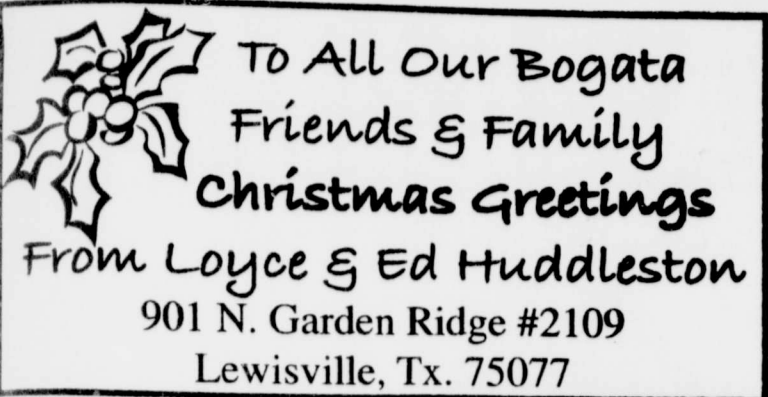 To All Our Bogata
Friends & Family
Christmas Greetings
From Loyce & Ed Huddleston
901 N. Garden Ridge #2109
Lewisville, Tx. 75077